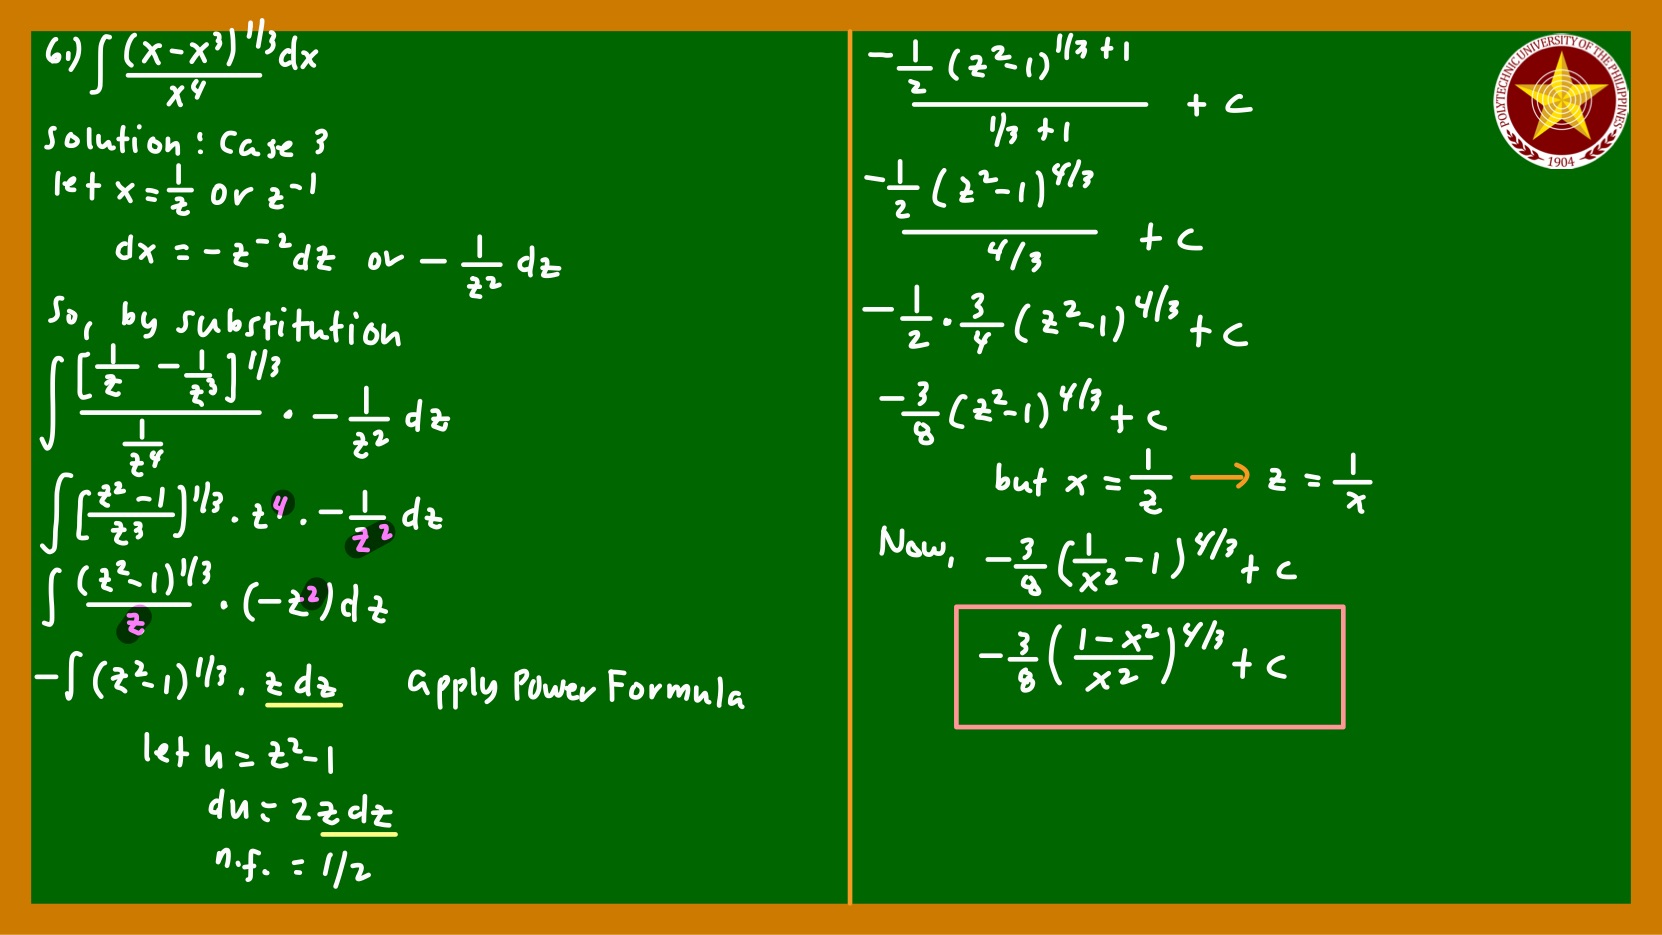 6.) ∫ (x-x³)^1/3 dx / x⁴
Solution: Case 3
let x = 1/z or z⁻¹
dx = -z⁻² dz or - 1/z² dz
So, by substitution
∫ [1/z - 1/z³]^1/3 / (1/z⁴) · - 1/z² dz
∫ [(z²-1)/z³]^1/3 · z⁴ · - 1/z² dz
∫ (z²-1)^1/3 / z · (-z²) dz
-∫ (z²-1)^1/3 · z dz apply Power Formula
let u = z²-1
du = 2 z dz
n.f. = 1/2
- 1/2 (z²-1)^1/3+1 / (1/3 + 1) + c
- 1/2 (z²-1)^4/3 / (4/3) + c
- 1/2 · 3/4 (z²-1)^4/3 + c
- 3/8 (z²-1)^4/3 + c
but x = 1/z → z = 1/x
Now, - 3/8 (1/x² - 1)^4/3 + c
- 3/8 ((1-x²)/x²)^4/3 + c
POLYTECHNIC UNIVERSITY OF THE PHILIPPINES
1904